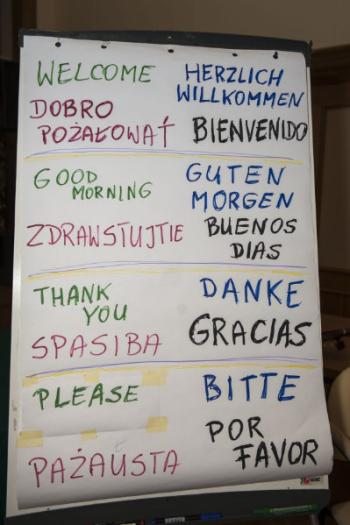 WELCOME
HERZLICH
WILLKOMMEN
DOBRO
POŻAŁOWAŤ
BIENVENIDO
GOOD
MORNING
GUTEN
MORGEN
ZDRAWSTUJTIE
BUENOS
DIAS
THANK
YOU
DANKE
SPASIBA
GRACIAS
PLEASE
BITTE
PAŻAUSTA
POR
FAVOR